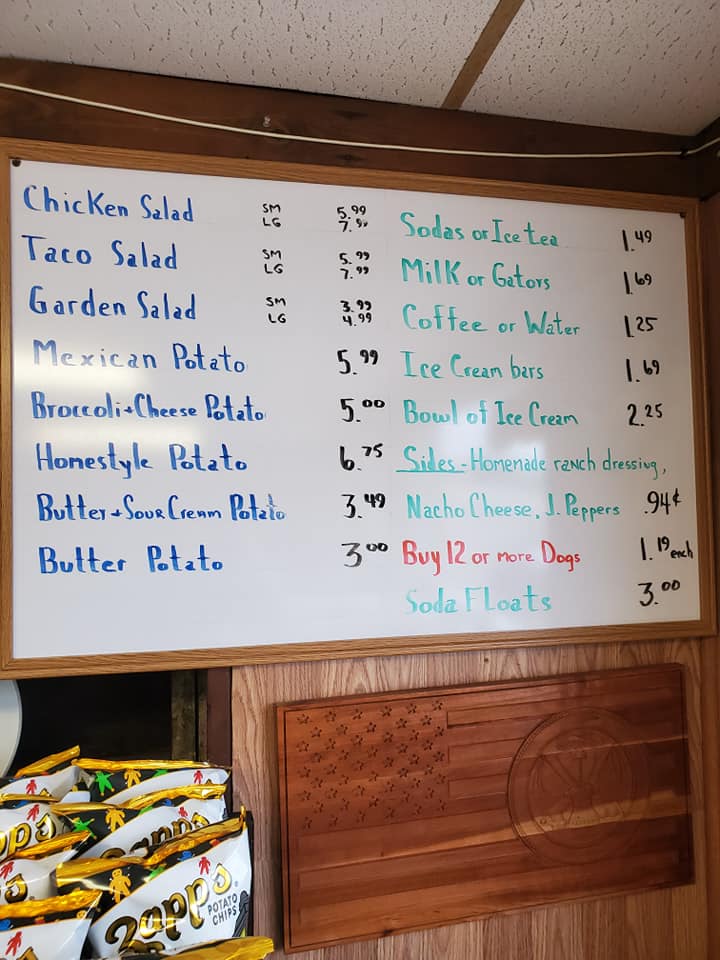 Chicken Salad SM 5.99
LG 7.99
Taco Salad SM 5.99
LG 7.99
Garden Salad SM 3.99
LG 4.99
Mexican Potato 5.99
Broccoli+Cheese Potato 5.00
Homestyle Potato 6.75
Butter+Sour Cream Potato 3.49
Butter Potato 3.00
Sodas or Ice tea 1.49
Milk or Gators 1.69
Coffee or Water 1.25
Ice Cream bars 1.69
Bowl of Ice Cream 2.25
Sides - Homenade ranch dressing,
Nacho Cheese, J. Peppers .94¢
Buy 12 or more Dogs 1.19 each
Soda Floats 3.00
Zapp's
POTATO
CHIPS